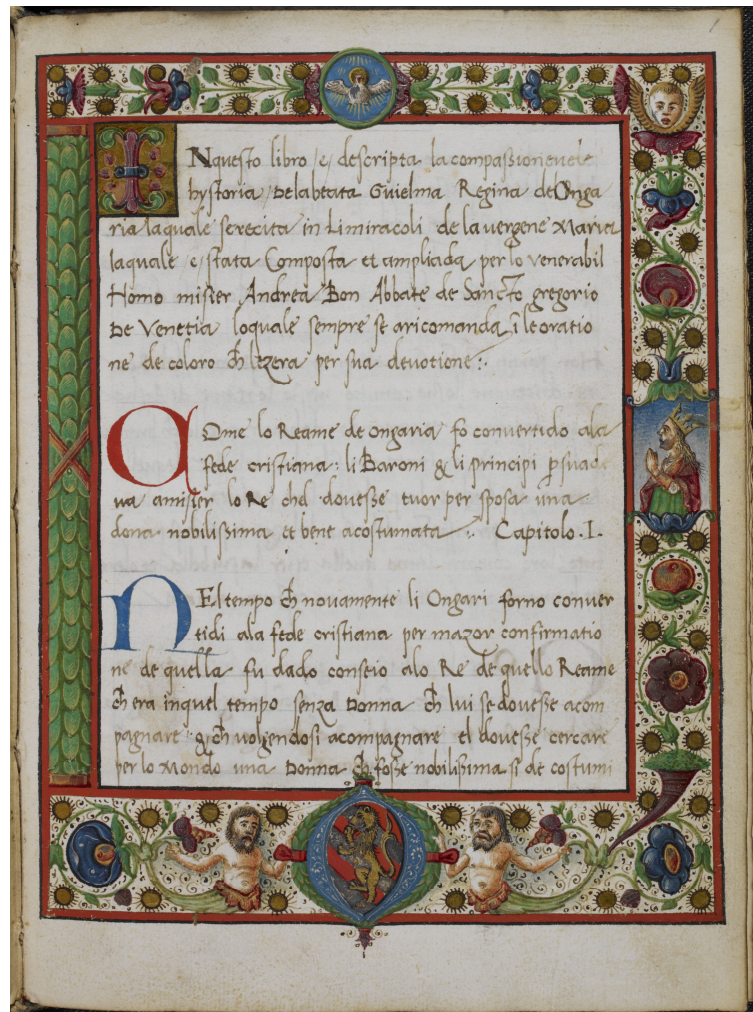 INquesto libro /e/ descripta la compassionevele
hystoria / Dela beata Guielma Regina de Onga
ria laquale se recita in Li miracoli de la vergene Maria
laquale /e/ stata Composta et ampliada per lo venerabil
Homo misier Andrea Bon Abbate de Sancto gregorio
De Venetia loquale sempre se aricomanda ī le oratio
ne de coloro ch̄ lezera per sua devotione :.
COme lo Reame de ongaria fo convertido ala
fede cristiana : li Baroni & li principi ꝑsuade
va a misier lo Re chel dovesse tuor per sposa una
dona nobilissima et bene acostumata :. Capitolo .I.
NEl tempo ch̄ novamente li Ongari forno conver
tidi ala fede cristiana per mazor confirmatio
ne de quella fu dado conseio alo Re de quello Reame
ch̄ era in quel tempo senza Donna ch̄ lui se dovesse acom
pagnare & ch̄ volgendosi acompagnare el dovesse cercare
per lo Mondo una Donna ch̄ fosse nobilissima si de costumi